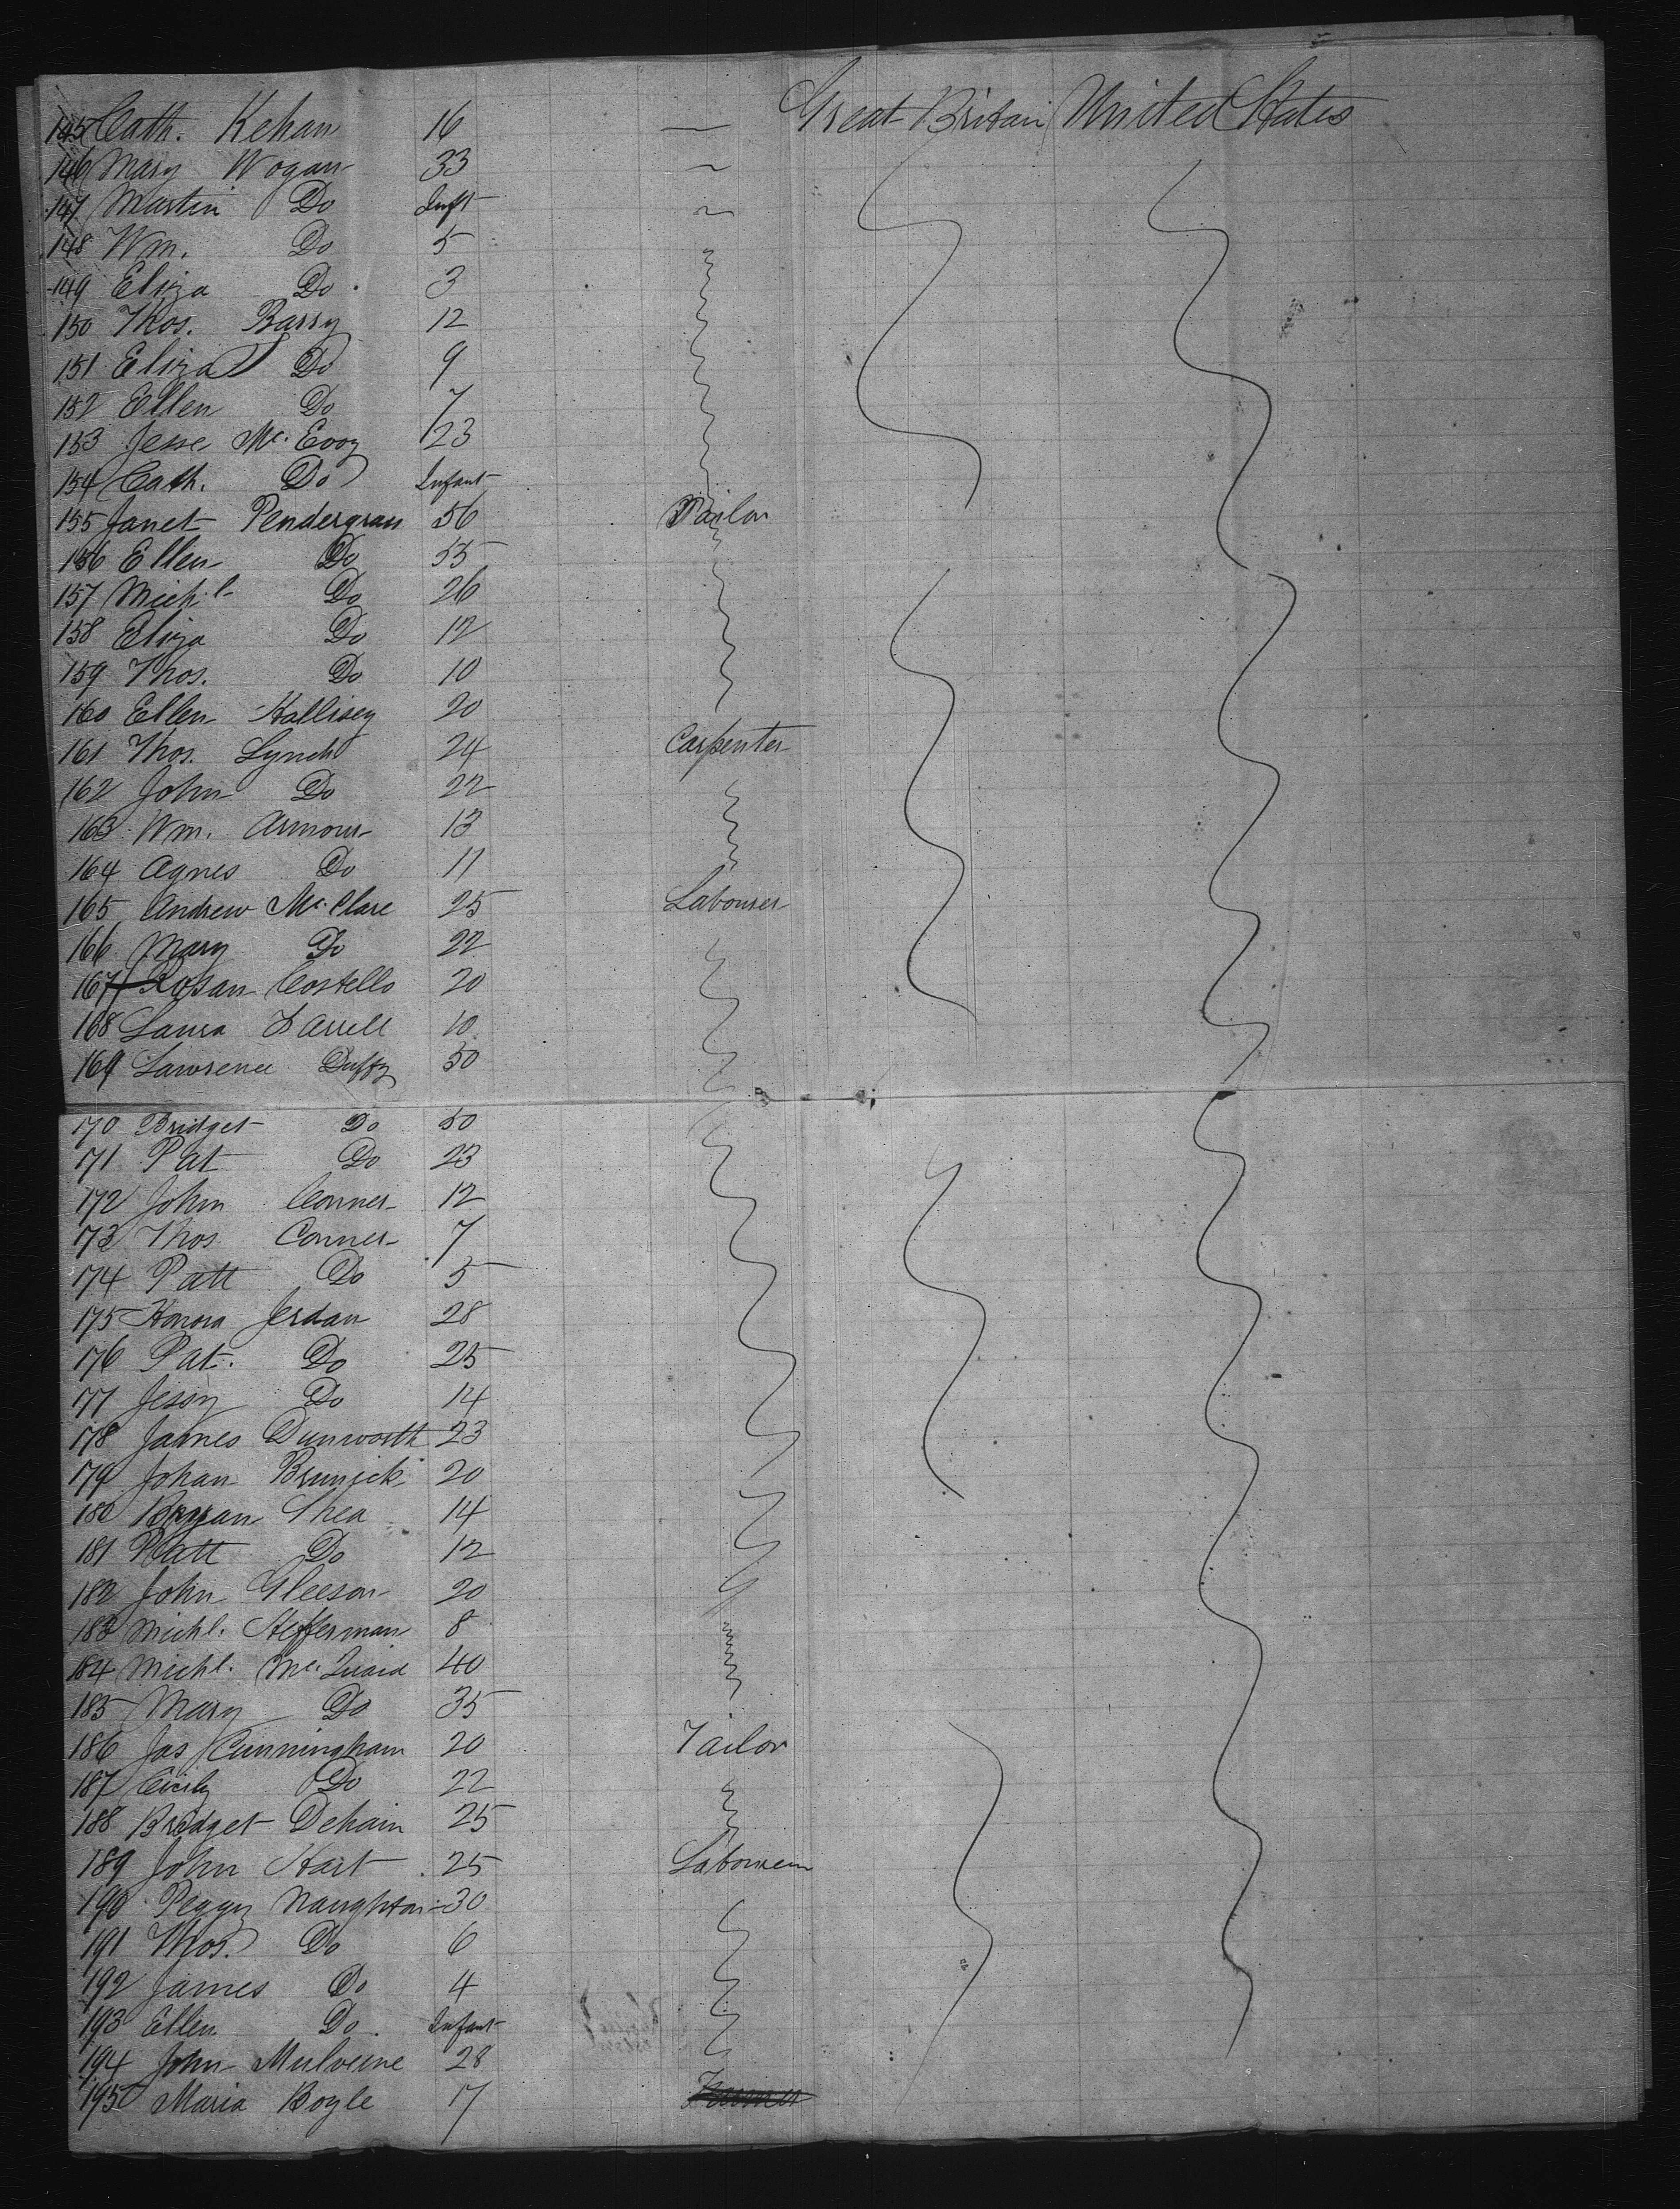 145 Cath. Kehan 16 — Great Britain United States
146 Mary Wogan 33
147 Martin Do Inft
148 Wm. Do 5
149 Eliza Do 3
150 Thos. Barry 12
151 Eliza Do 9
152 Ellen Do 7
153 Jesse Mc. Evoy 23
154 Cath. Do Infant
155 Janet Pendergrass 56 Tailor
156 Ellen Do 55
157 Mich.l Do 26
158 Eliza Do 12
159 Thos. Do 10
160 Ellen Hallisey 20
161 Thos. Lynch 24 Carpenter
162 John Do 22
163 Wm. Armour 13
164 Agnes Do 11
165 Andrew Mc. Clare 25 Labourer
166 Mary Do 22
167 Rosan Costello 20
168 Laura Farrell 10
169 Lawrence Duffy 50
170 Bridget Do 50
171 Pat Do 23
172 John Conner 12
173 Thos. Conner 7
174 Patt Do 5
175 Honora Jerdan 28
176 Pat. Do 25
177 Jessy Do 14
178 James Dunworth 23
179 Johan Brunick 20
180 Bryan Shea 14
181 Patt Do 12
182 John Gleeson 20
183 Michl. Hefferman 8
184 Michl. Mc. Quaid 40
185 Mary Do 35
186 Jas Cunningham 20 Tailor
187 Cicily Do 22
188 Bridget Dehain 25
189 John Hart 25 Labourer
190 Peggy Naughton 30
191 Thos. Do 6
192 James Do 4
193 Ellen Do Infant
194 John Mulveine 28
195 Maria Boyle 17 Farmer